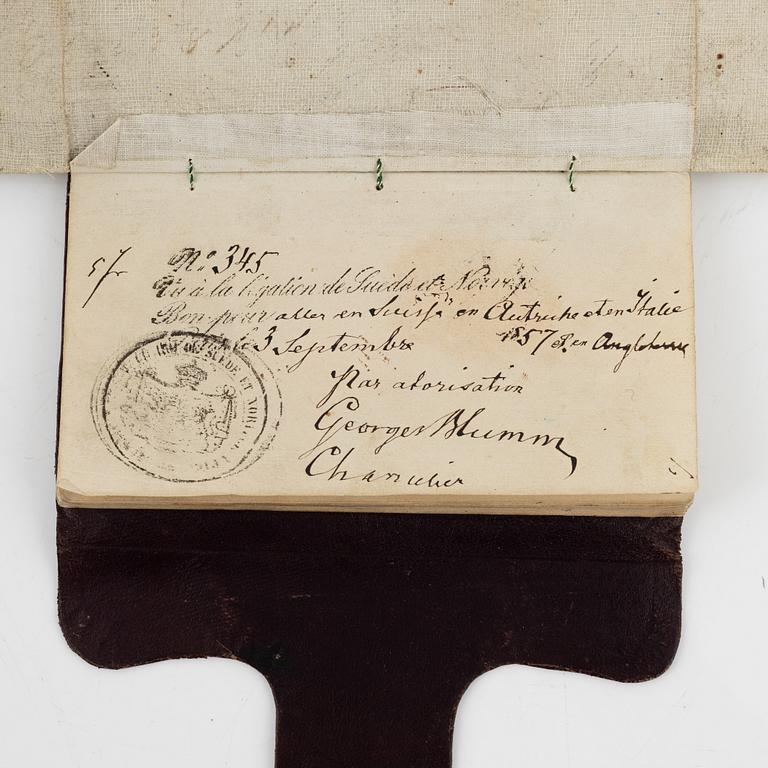 5 fr
No 345
Vu à la légation de Suède et Norvège
Bon pour aller en Suisse en Autriche et en Italie
le 3 Septembre 1857 et en Angleterre
Par atorisation
Georges Blumm
Chancelier
DE SUEDE ET NORVEGE